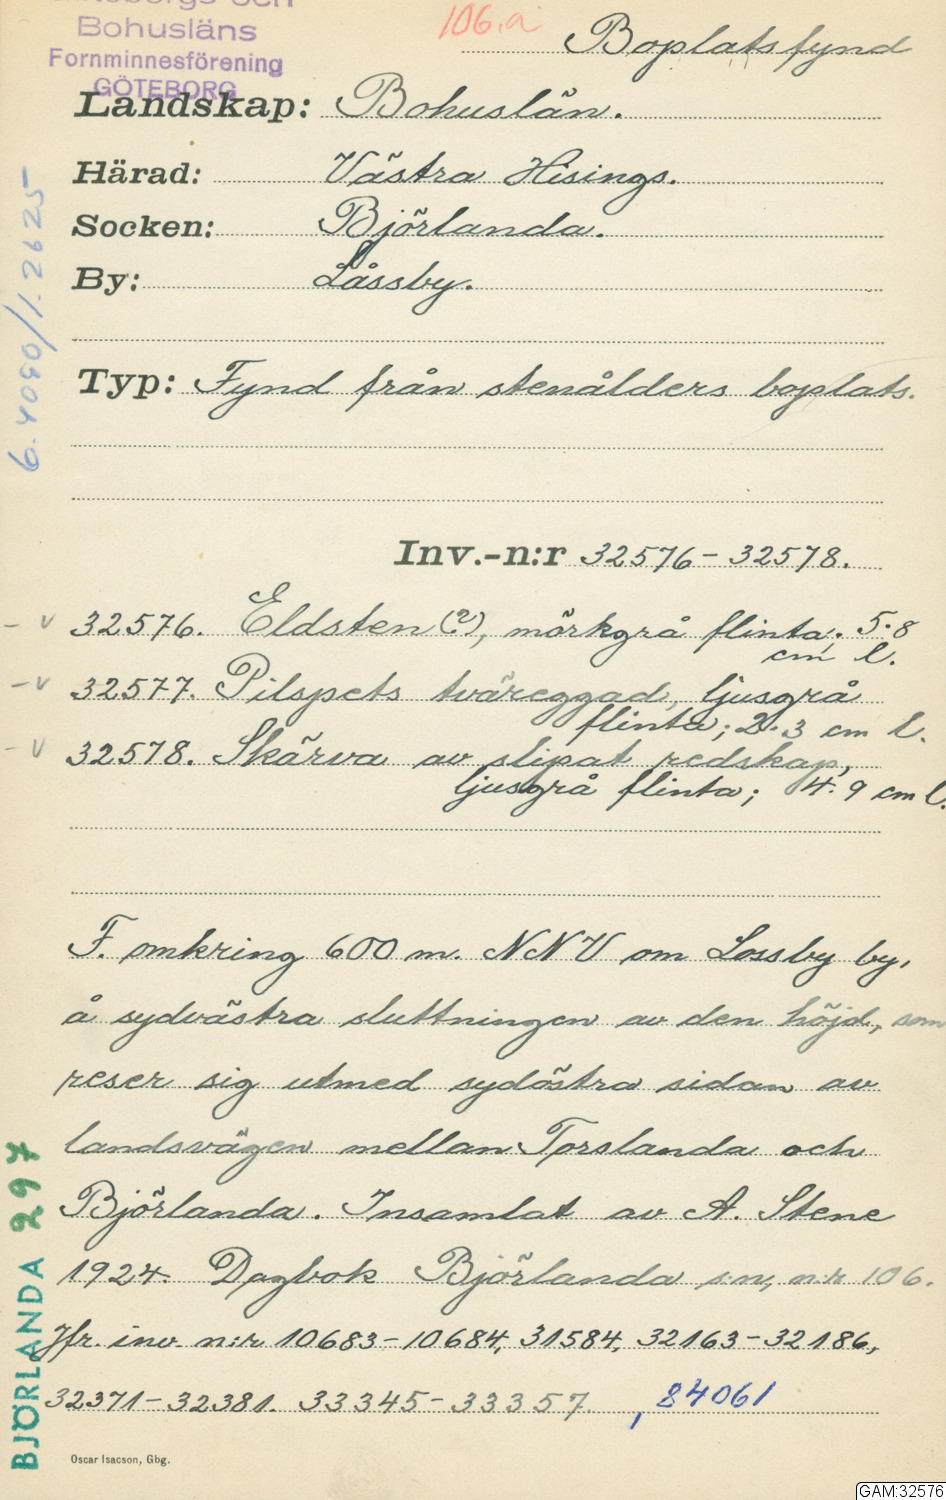 106.a
Boplatsfynd
Bohusläns
Fornminnesförening
GÖTEBORG
Landskap: Bohuslän.
Härad: Västra Hisings.
Socken: Björlanda.
By: Låssby.
6.4090/1.2625
Typ: Fynd från stenålders boplats.
Inv.-n:r 32576-32578.
- v 32576. Eldsten (?), mörkgrå flinta; 5.8
cm l.
- v 32577. Pilspets tväreggad, ljusgrå
flinta; 2.3 cm l.
- v 32578. Skärva av slipat redskap,
ljusgrå flinta; 4.9 cm l.
F. omkring 600 m. NNV om Lossby by,
å sydvästra sluttningen av den höjd, som
reser sig utmed sydöstra sidan av
landsvägen mellan Torslanda och
Björlanda. Insamlat av A. Stene
1924. Dagbok Björlanda s:n, n:r 106.
Jfr. inv. n:r 10683-10684, 31584, 32163-32186,
32371-32381. 33345-33357. , 84061
BJÖRLANDA 297
Oscar Isacson, Gbg.
GAM:32576